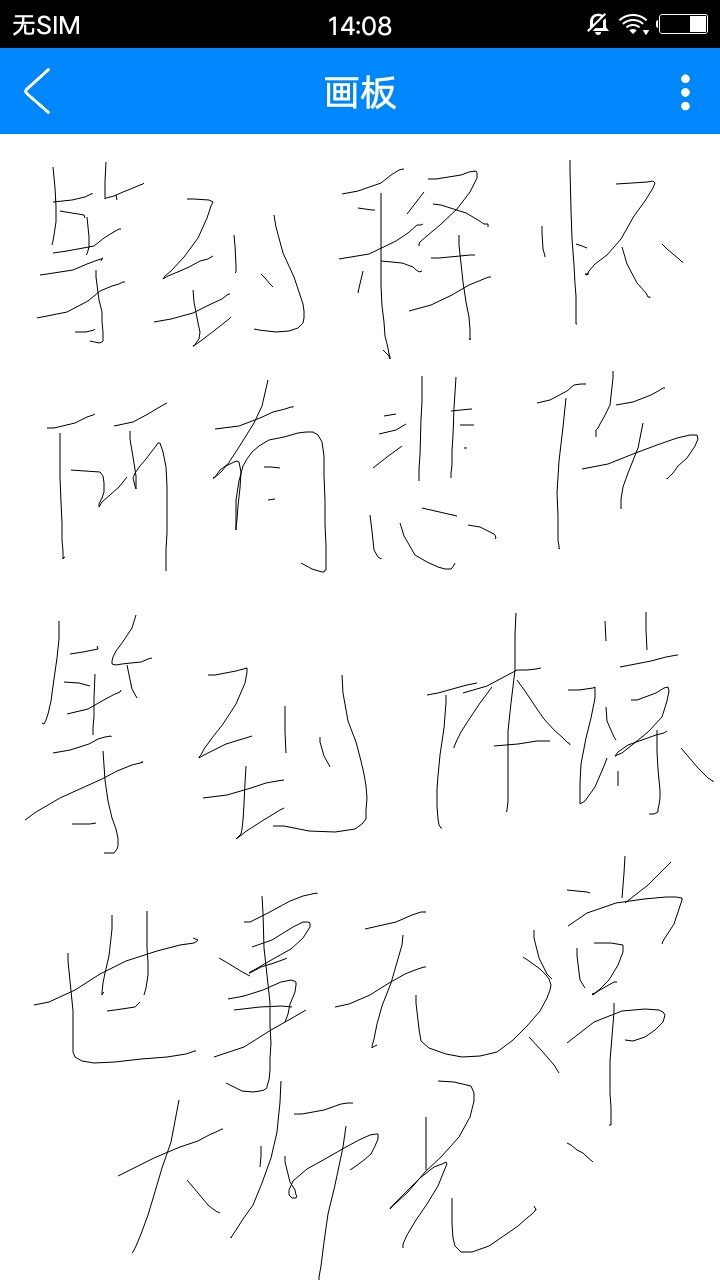 无SIM 14:08
画板
等到释怀
所有悲伤
等到体谅
世事无常
大师兄、